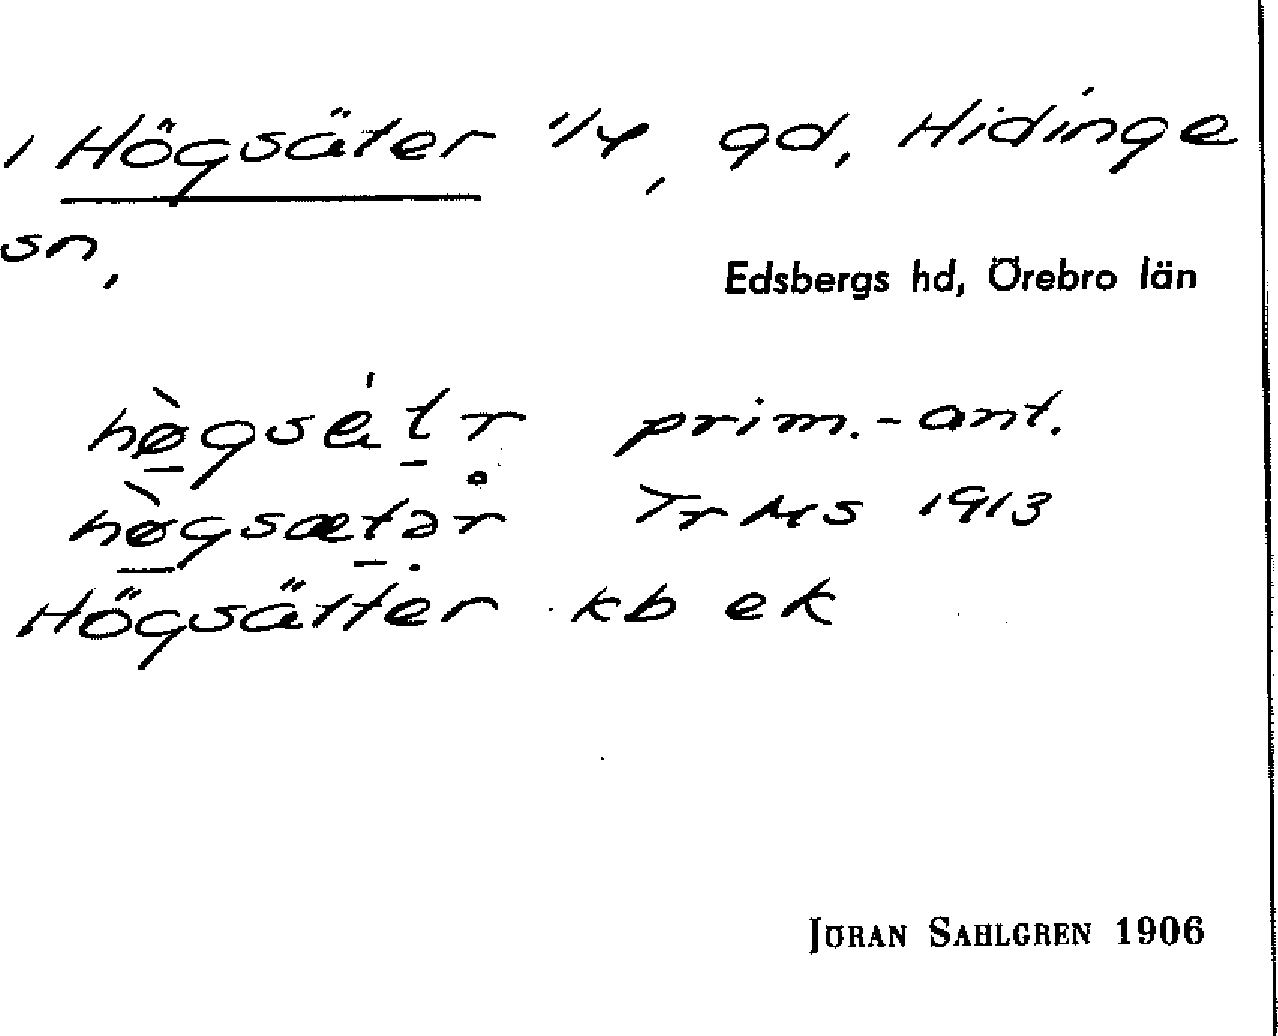 1 Högsäter 1/4, gd, Hidinge
sn,
Edsbergs hd, Örebro län
hø̀gsètr prim.-ant.
hø̀gsætər TrMs 1913
Högsätter kb ek
JÖRAN SAHLGREN 1906